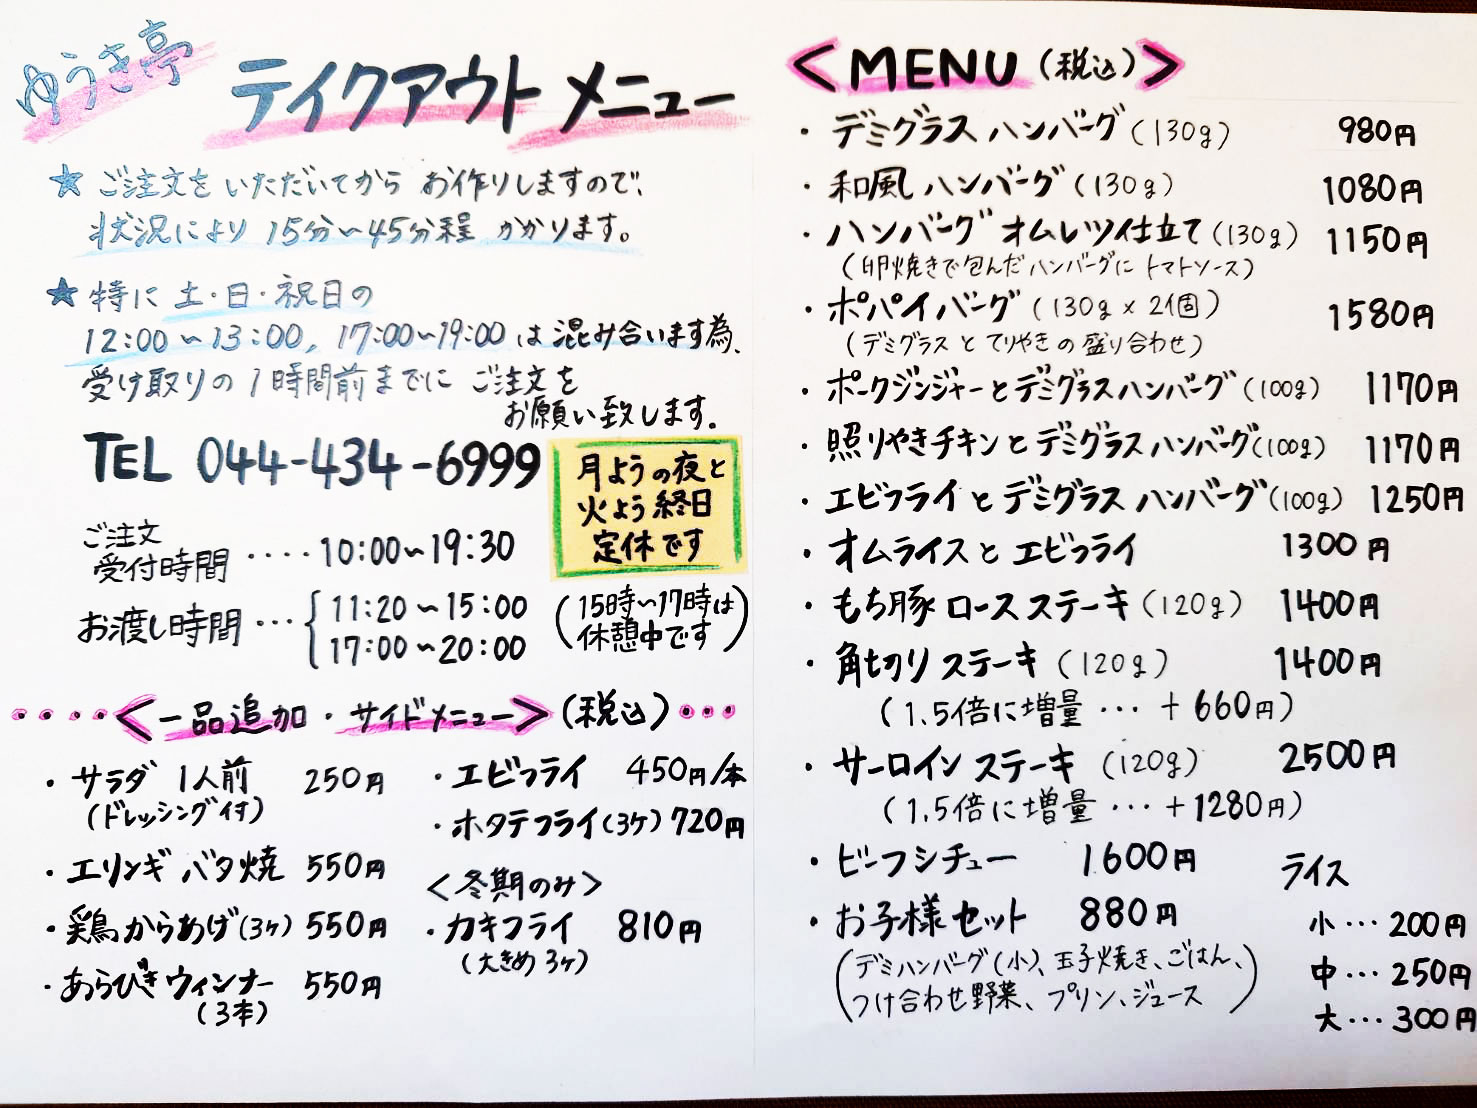 ゆうき亭
テイクアウトメニュー
★ ご注文をいただいてから お作りしますので、
状況により 15分〜45分程 かかります。
★ 特に 土・日・祝日の
12:00〜13:00, 17:00〜19:00 は 混み合います為、
受け取りの 1時間前までに ご注文を
お願い致します。
TEL 044-434-6999
月ようの夜と
火よう終日
定休です
ご注文
受付時間 ････ 10:00〜19:30
お渡し時間 ･･･ { 11:20〜15:00
17:00〜20:00
(15時〜17時は
休憩中です)
････<一品追加・サイドメニュー>(税込)･･･
・サラダ 1人前 250円
(ドレッシング付)
・エリンギ バタ焼 550円
・鶏からあげ(3ケ) 550円
・あらびきウィンナー 550円
(3本)
・エビフライ 450円/本
・ホタテフライ(3ケ) 720円
<冬期のみ>
・カキフライ 810円
(大きめ3ケ)
<MENU(税込)>
・デミグラスハンバーグ(130g) 980円
・和風ハンバーグ(130g) 1080円
・ハンバーグ オムレツ仕立て(130g) 1150円
(卵焼きで包んだハンバーグに トマトソース)
・ポパイバーグ(130g×2個) 1580円
(デミグラスと てりやきの盛り合わせ)
・ポークジンジャーとデミグラスハンバーグ(100g) 1170円
・照りやきチキンとデミグラスハンバーグ(100g) 1170円
・エビフライとデミグラスハンバーグ(100g) 1250円
・オムライスと エビフライ 1300円
・もち豚ロースステーキ(120g) 1400円
・角切りステーキ(120g) 1400円
(1.5倍に増量 ･･･ +660円)
・サーロインステーキ(120g) 2500円
(1.5倍に増量 ･･･ +1280円)
・ビーフシチュー 1600円
・お子様セット 880円
(デミハンバーグ(小)、玉子焼き、ごはん、
つけ合わせ野菜、プリン、ジュース)
ライス
小･･･200円
中･･･250円
大･･･300円